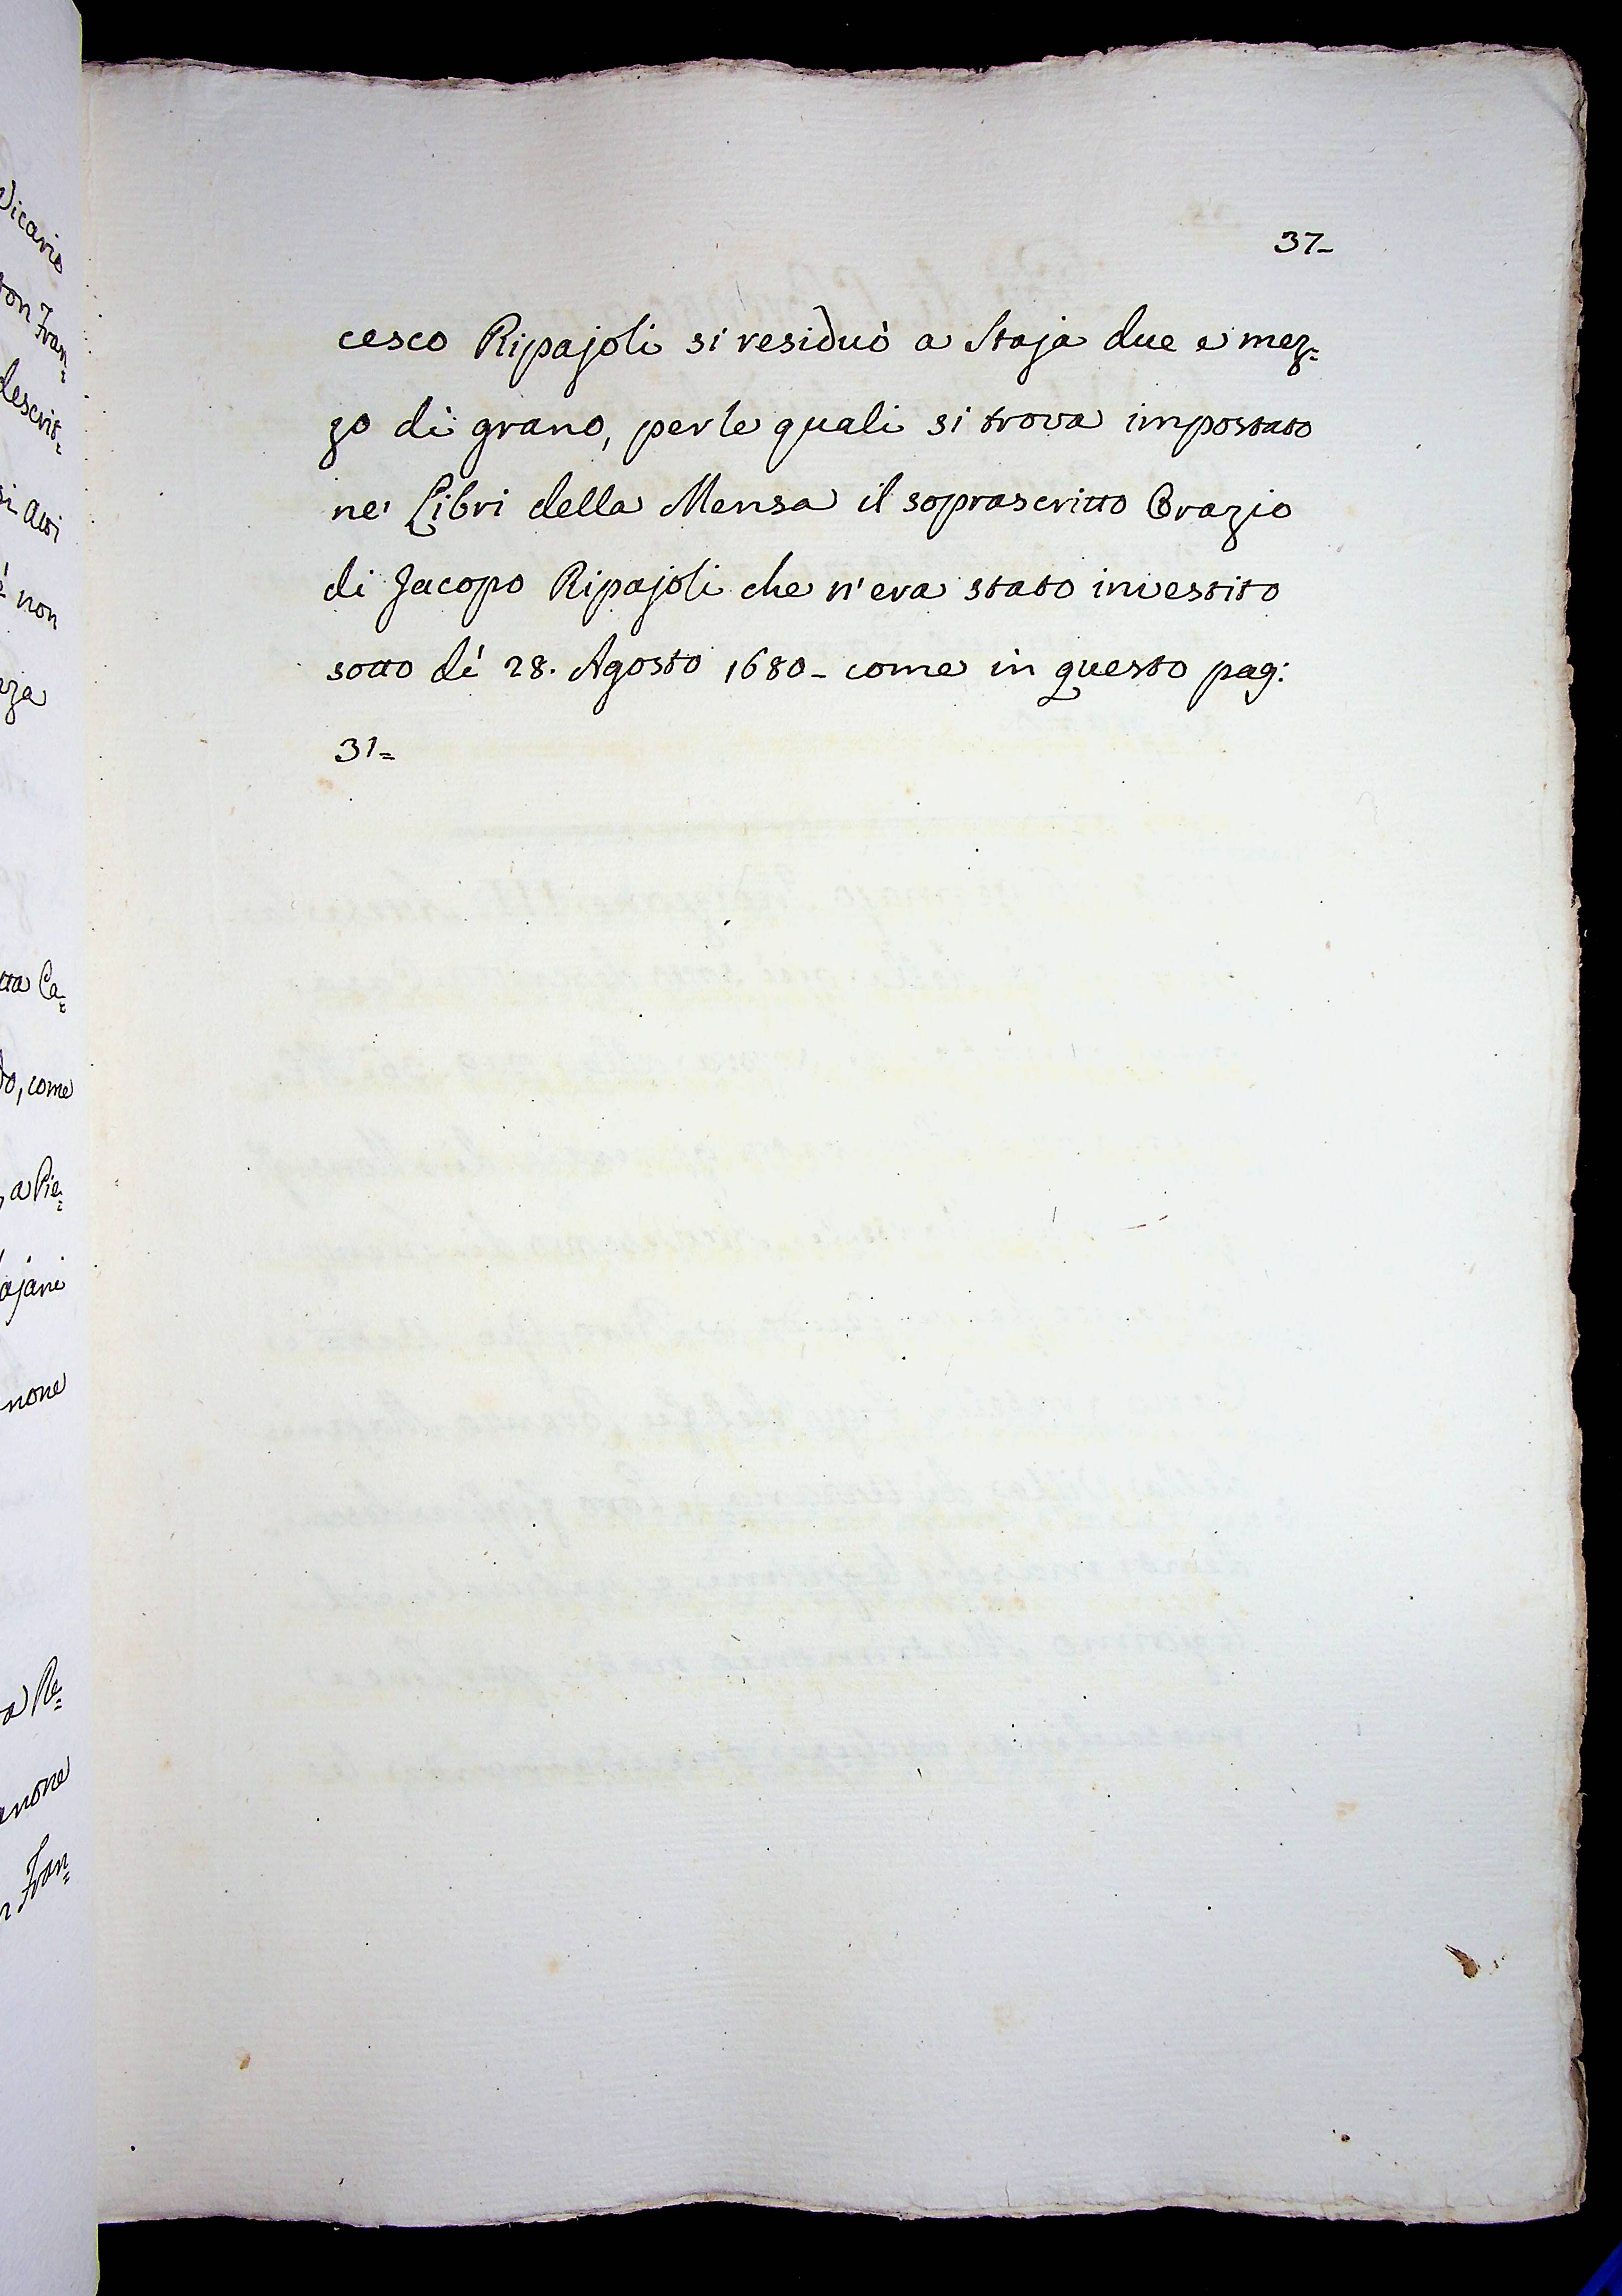 37-
cesco Ripajoli si residuò a Staja due e mez=
zo di grano, per le quali si trova impostato
ne' Libri della Mensa il soprascritto Orazio
di Jacopo Ripajoli che n'era stato investito
sotto dì 28. Agosto 1680- come in questo pag:
31=
Vicario
Fran=
descrit=
non
Ca=
come
a Pie=
none
Fran=